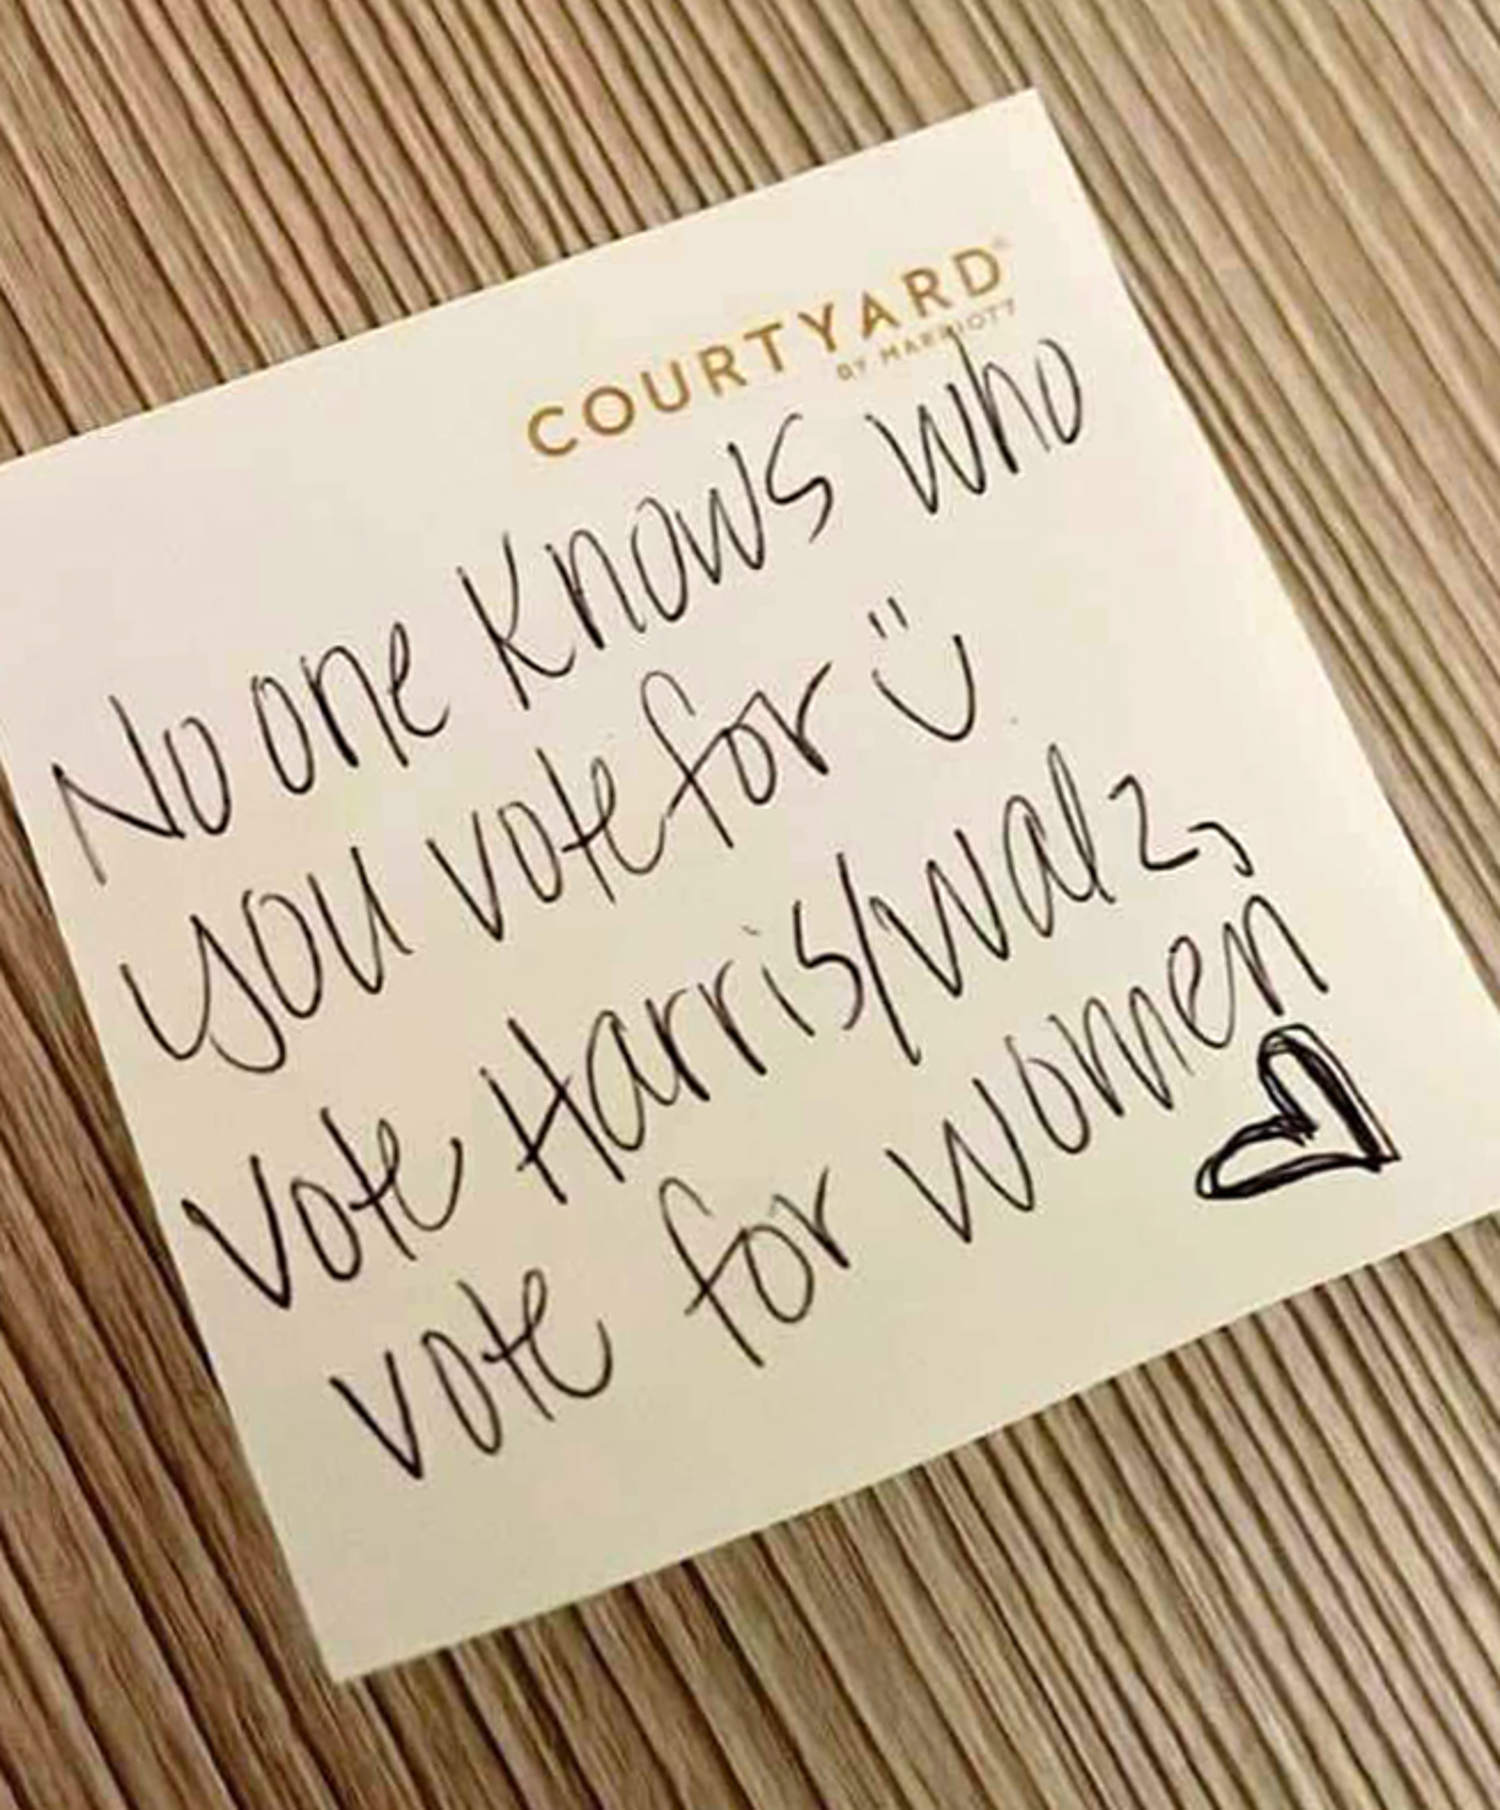 COURTYARD
BY MARRIOTT
No one knows who
you vote for
Vote Harris/Walz,
vote for women